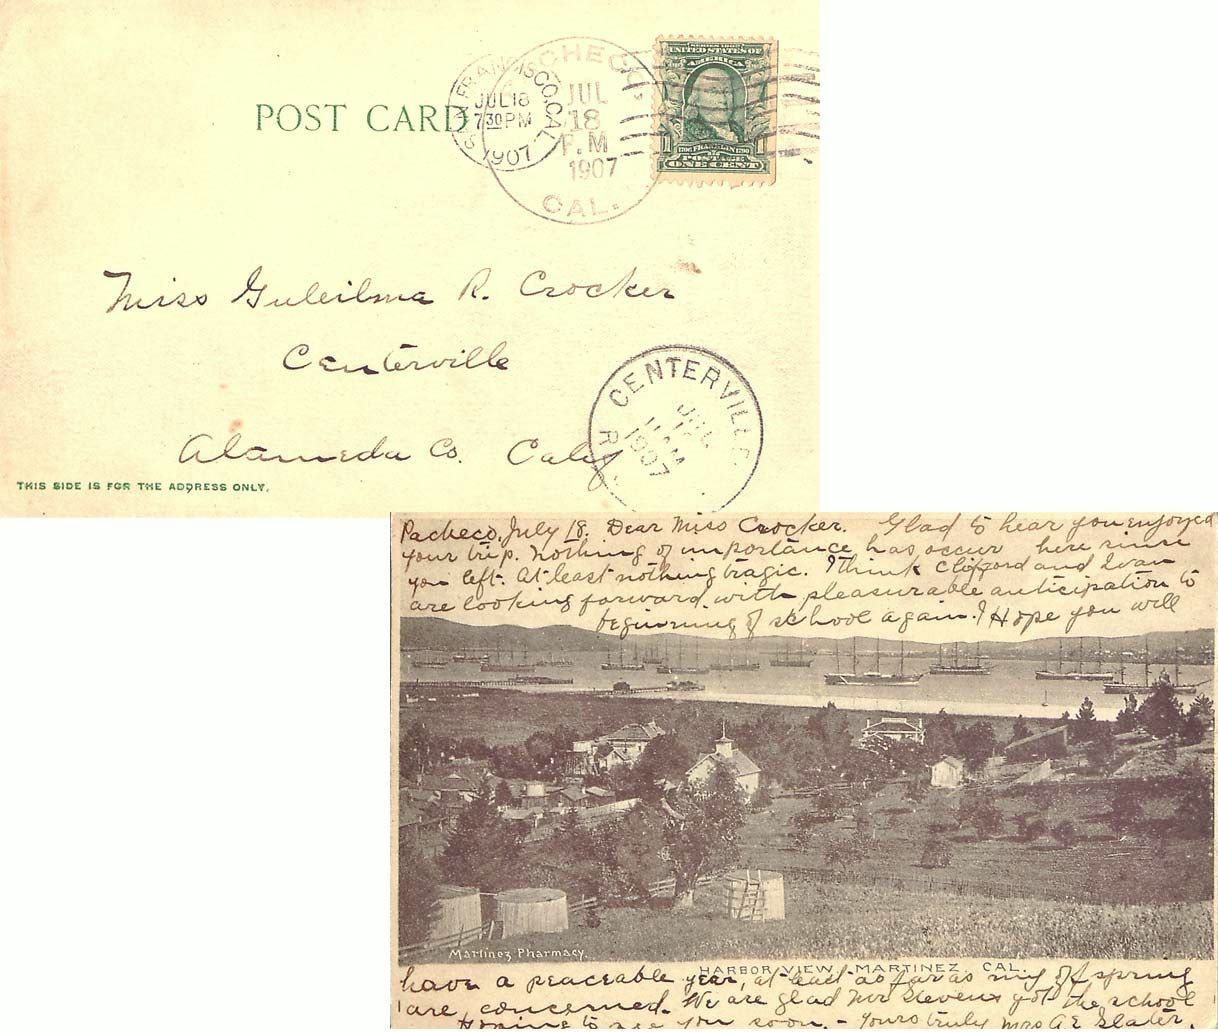 POST CARD
SAN FRANCISCO, CAL.
JUL 18
7 30 PM
1907
PACHECO
JUL
18
P.M
1907
CAL.
SERIES 1902
UNITED STATES OF
AMERICA
1706 FRANKLIN 1790
POSTAGE
1 ONE CENT 1
Miss Guleilma R. Crocker
Centerville
Alameda Co. Calif
CENTERVILLE
JUL
11 AM
1907
THIS SIDE IS FOR THE ADDRESS ONLY.
Pacheco, July 18. Dear Miss Crocker. Glad to hear you enjoyed
your trip. Nothing of importance has occur here since
you left. At least nothing tragic. I think Clifford and Ivan
are looking forward with pleasurable anticipation to
beginning of school again. I Hope you will
Martinez Pharmacy.
HARBOR VIEW, MARTINEZ, CAL.
have a peaceable year, at least as far as my of spring
are concerned. We are glad Mr Stevens got the school
Hoping to see you soon. - Yours truly Mrs A E Slater.